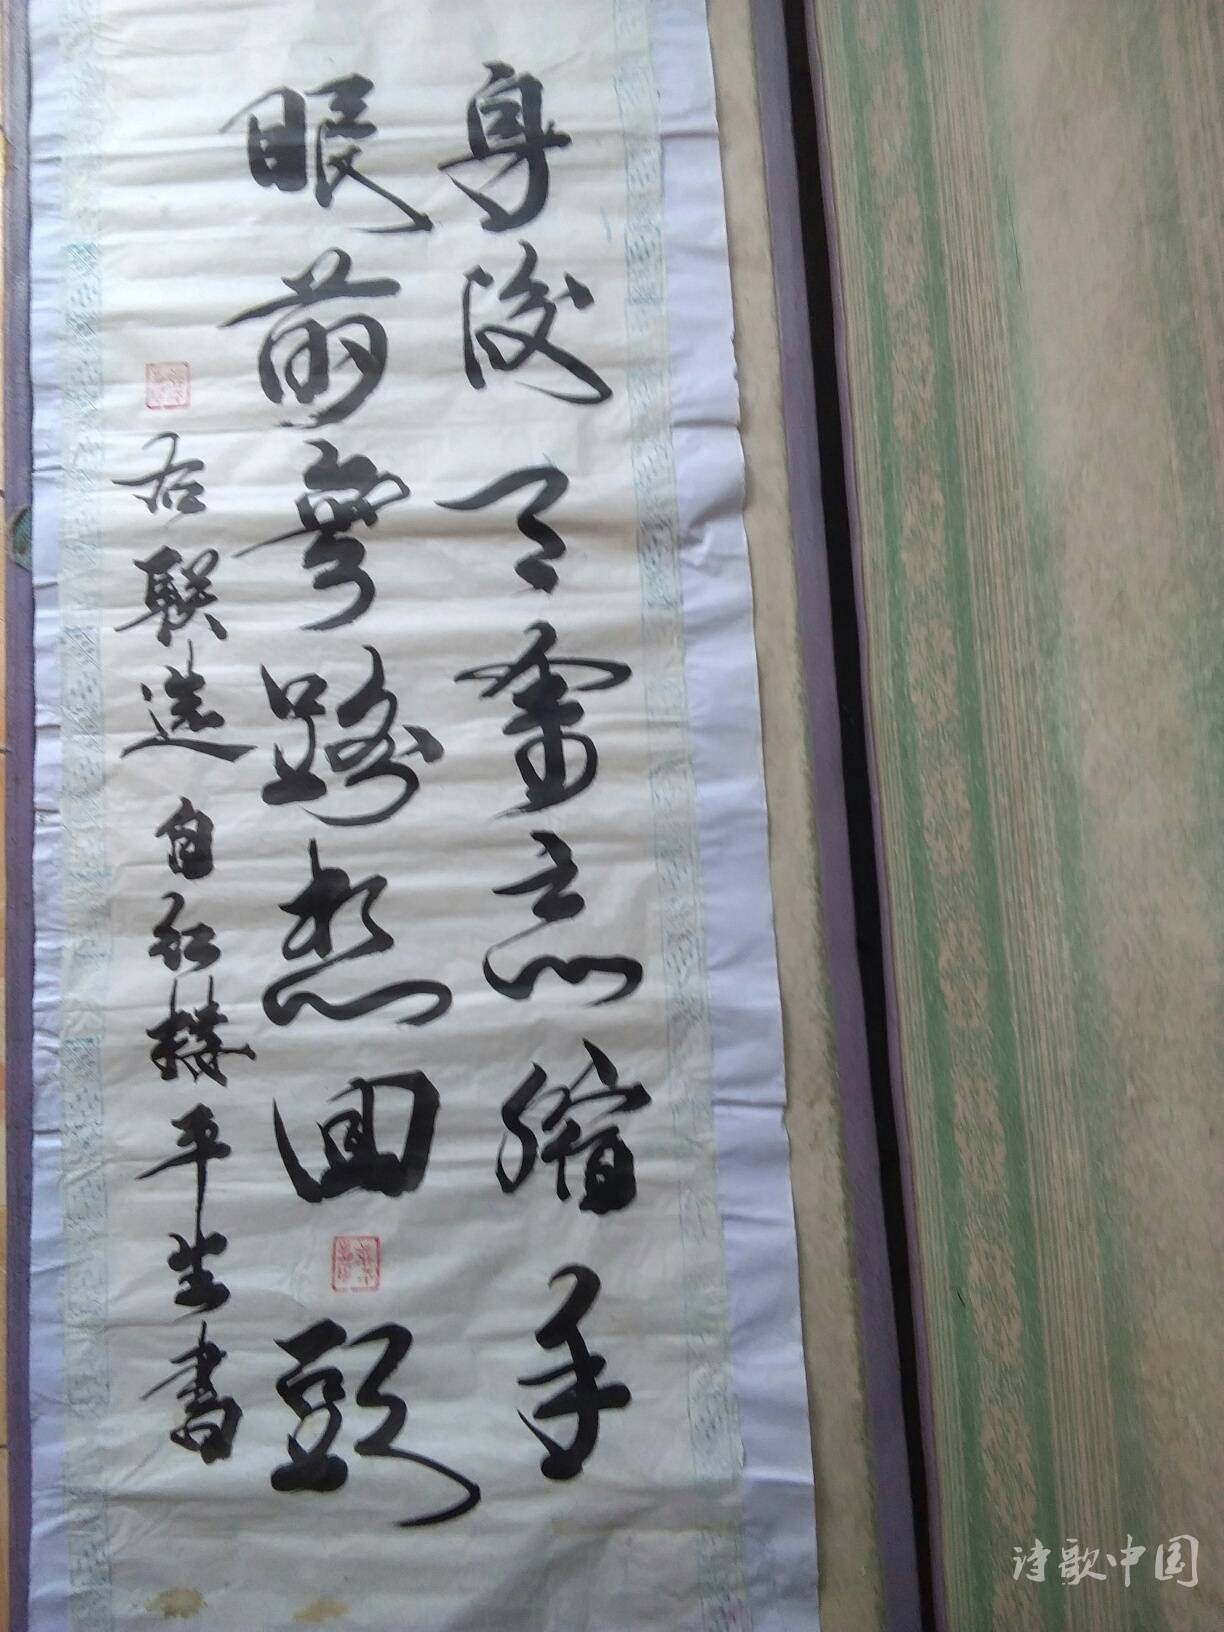 身後有餘忘縮手
眼前無路想回頭
右联选自红楼平生書
诗歌中国